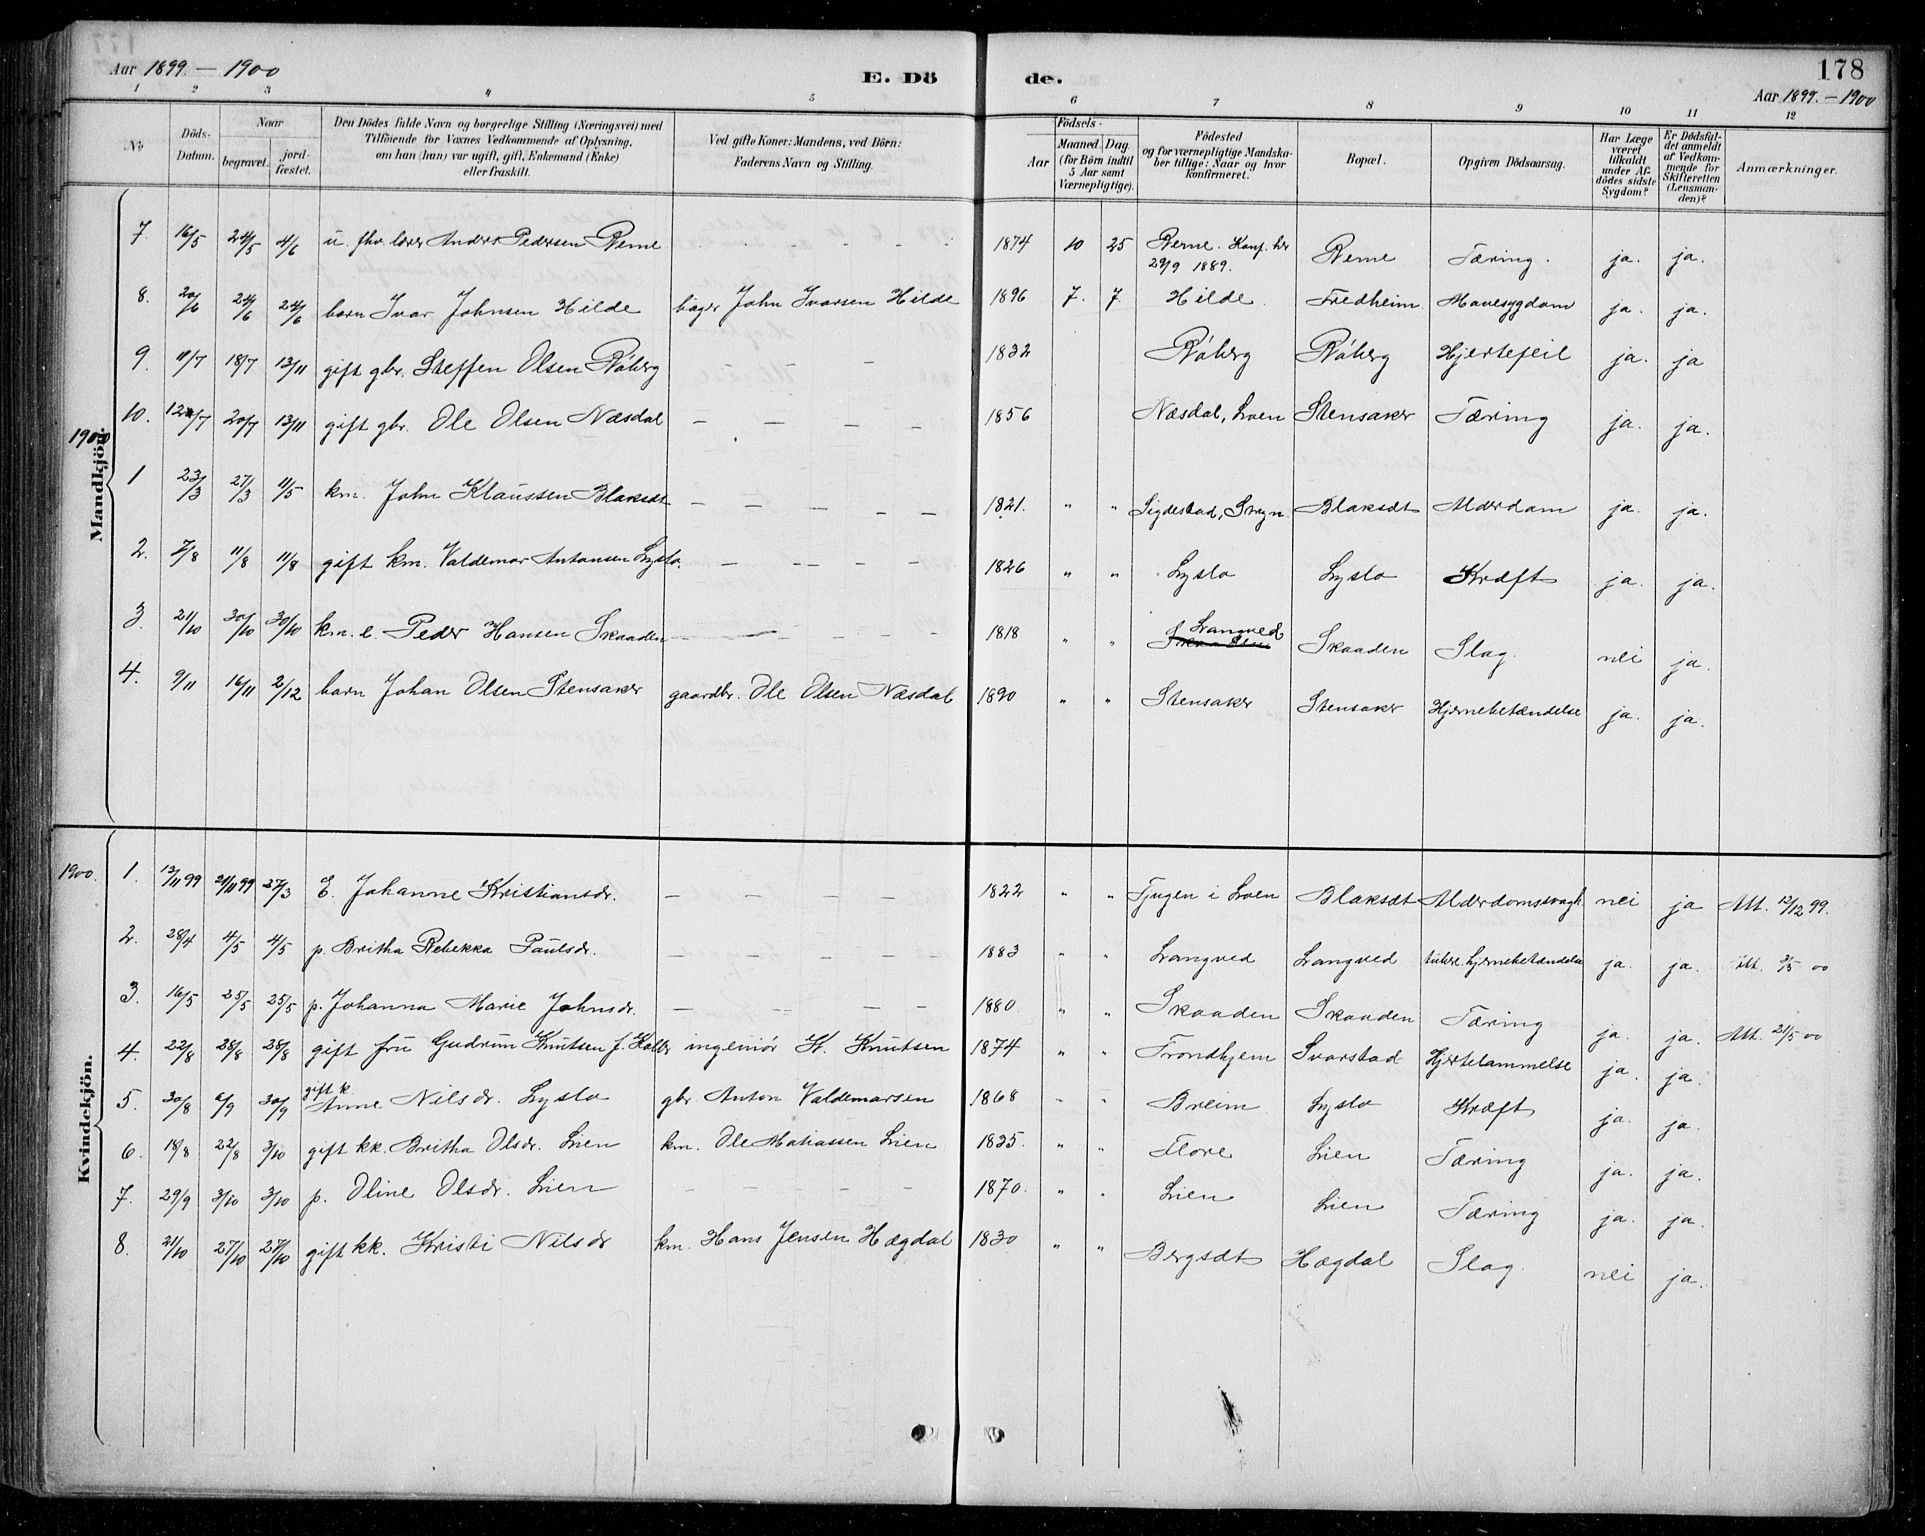 178
Aar 1899. — 1900
E. Dö de.
Aar 1899. — 1900
1 2 3 4 5 6 7 8 9 10 11 12
No
Döds-Datum.
Naar
begravet.
jord-fæstet.
Den Dödes fulde Navn og borgerlige Stilling (Næringsvei) med
Tilföiende for Voxnes Vedkommende af Oplysning,
om han (hun) var ugift, gift, Enkemand (Enke)
eller fraskilt.
Ved gifte Koner: Mandens, ved Börn:
Faderens Navn og Stilling.
Födsels-
Aar
Maaned. Dag.
(for Börn indtil 5 Aar samt Værnepligtige).
Födested
og for værnepligtige Mandska-
ber tillige: Naar og hvor
konfirmeret.
Bopæl.
Opgiven Dödsaarsag.
Har Læge været tilkaldt under Af-dödes sidste Sygdom?
Er Dödsfal-det anmeldt af Vedkom-mende for Skifteretten (Lensman-den)?
Anmærkninger.
Mandkjön.
7. 16/5 24/5 4/6 u. fhv. lærer Anders Pedersen Reme 1874 10 25 Reme. Konf. her 29/9 1889. Reme Tæring. ja. ja.
8. 20/6 24/6 24/6 barn Ivar Johnsen Hilde bager John Ivarsen Hilde 1896 7. 7. Hilde. Fredheim Mavesygdom ja. ja.
9. 11/7 18/7 13/11 gift gbr. Steffen Olsen Röberg — — — 1832 Röberg Röberg Hjertefeil ja. ja
10. 12/7 20/7 13/11 gift gbr. Ole Olsen Næsdal — — — — 1856 Næsdal, Loen Stensaker Tæring ja. ja.
1900
1 23/3 27/3 11/5 km. John Klaussen Blaksæt — — — — — 1821. " " Sigdestad, Stryn. Blaksæt Alderdom ja. ja.
2. 7/8 11/8 11/8 gift km. Valdemar Antonsen Lyslo. — — — — — 1826 " " Lyslo Lyslo Kræft ja. ja.
3. 21/10 30/10 30/10 km. e. Peder Hansen Skaaden — — — — — 1818 " " Langved Skaaden Slag. nei ja.
4. 9/11 16/11 2/12 barn Johan Olsen Stensaker gaardbr. Ole Olsen Næsdal 1890 " " Stensaker Stensaker Hjernebetændelse ja. ja.
Kvindekjön.
1900. 1. 13/11 99 21/11 99 27/3 E. Johanne Kristiansdr. — — — — 1822 " " Tjugen i Loen Blaksæt Alderdomssvagh. nei ja Att. 12/12 99.
2. 28/4 4/5 4/5 p. Britha Rebekka Paulsdr. — — — — 1883 " " Langved Langved tuberc. hjernebetændelse ja. ja. Att. 3/5 00
3. 16/5 25/5 25/5 p. Johanna Marie Johnsdr. — — — — 1880 " " Skaaden Skaaden Tæring ja. ja. Att. 21/5 00
4. 22/8 28/8 28/8 gift fru Gudrun Knutsen f. ingeniör K. Knutsen 1874 " " Trondhjem Svarstad Hjertelammelse ja. ja.
5. 30/8 6/9 30/9 gift k. Anne Nilsdr. Lyslo gbr Anton Valdemarsen 1868 " " Breim Lyslo Kræft ja. ja.
6. 18/8 22/8 3/10 gift kk. Britha Olsdr. Lien km. Ole Matiassen Lien 1835 " " Flore Lien Tæring ja. ja.
7. 29/9 3/10 3/10 p. Oline Olsdr. Lien — — — — 1870. " " Lien Lien Tæring ja. ja.
8. 21/10 27/10 27/10 gift kk. Kristi Nilsdr km. Hans Jensen Hægdal 1830 " " Bergsæt Hægdal Slag. nei ja.